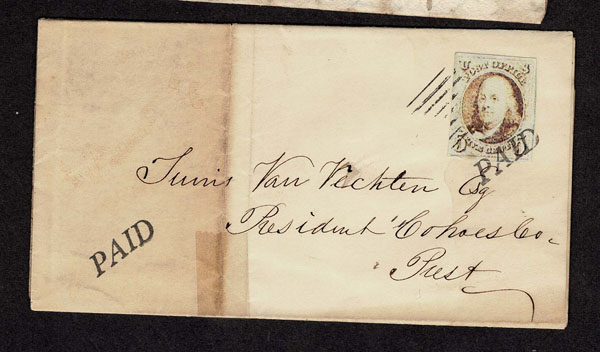 U S
POST OFFICE
FIVE CENTS
PAID
Teunis Van Vechten Esq
President Cohoes Co
Prest
PAID